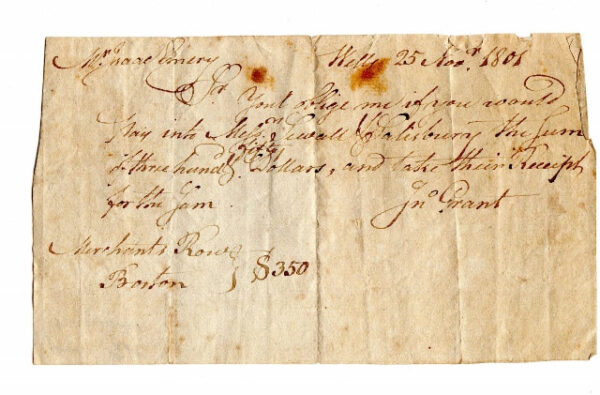 Mr Isaac Emery Wells 25 Novr 1801
Sr Youl oblige me if you would
Pay into Messrs Sewall & Salisbury the Sum
fifty
of three hundd & Dollars, and take their Receipt
for the Sam
Jno Grant
Merchants Row
Boston } $350